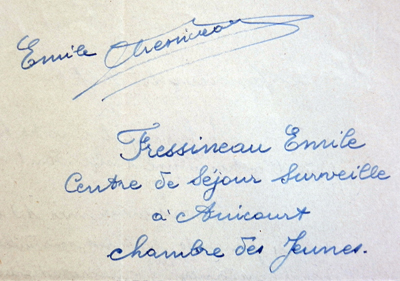 Emile Fressineau
Fressineau Emile
Centre de Séjour Surveillé
à Aincourt
chambre des Jeunes.